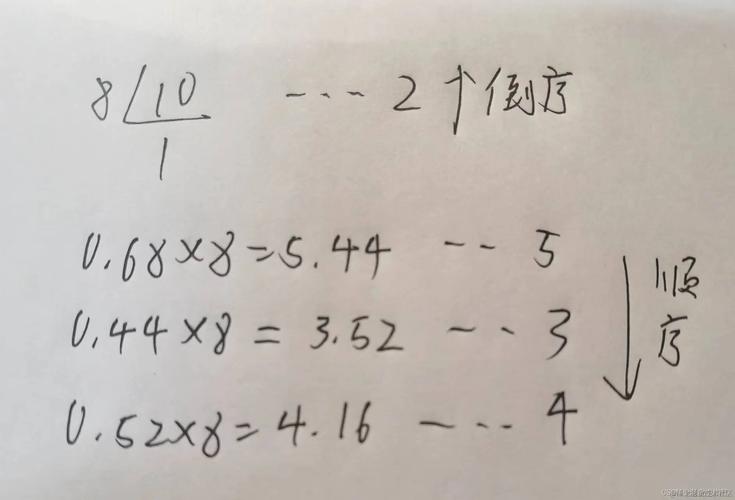 8 10 --- 2 ↑倒序
1
0.68×8=5.44 -- 5
0.44×8=3.52 --- 3
0.52×8=4.16 --- 4
↓顺序